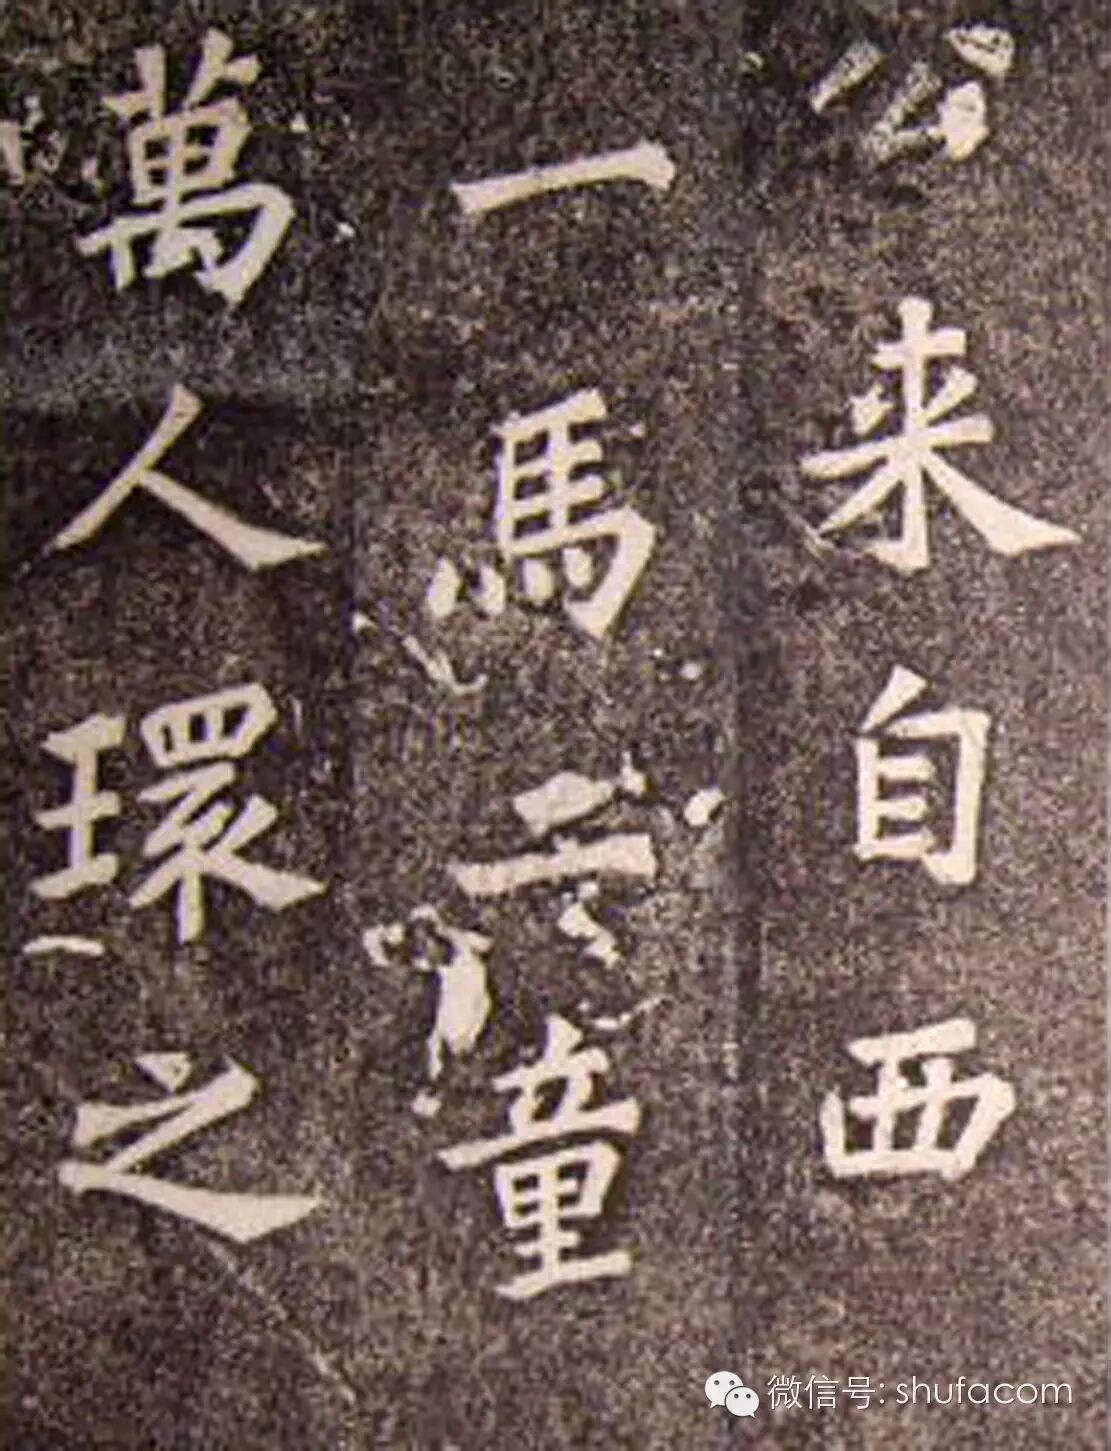 公来自西
一馬二童
萬人環之
微信号: shufacom